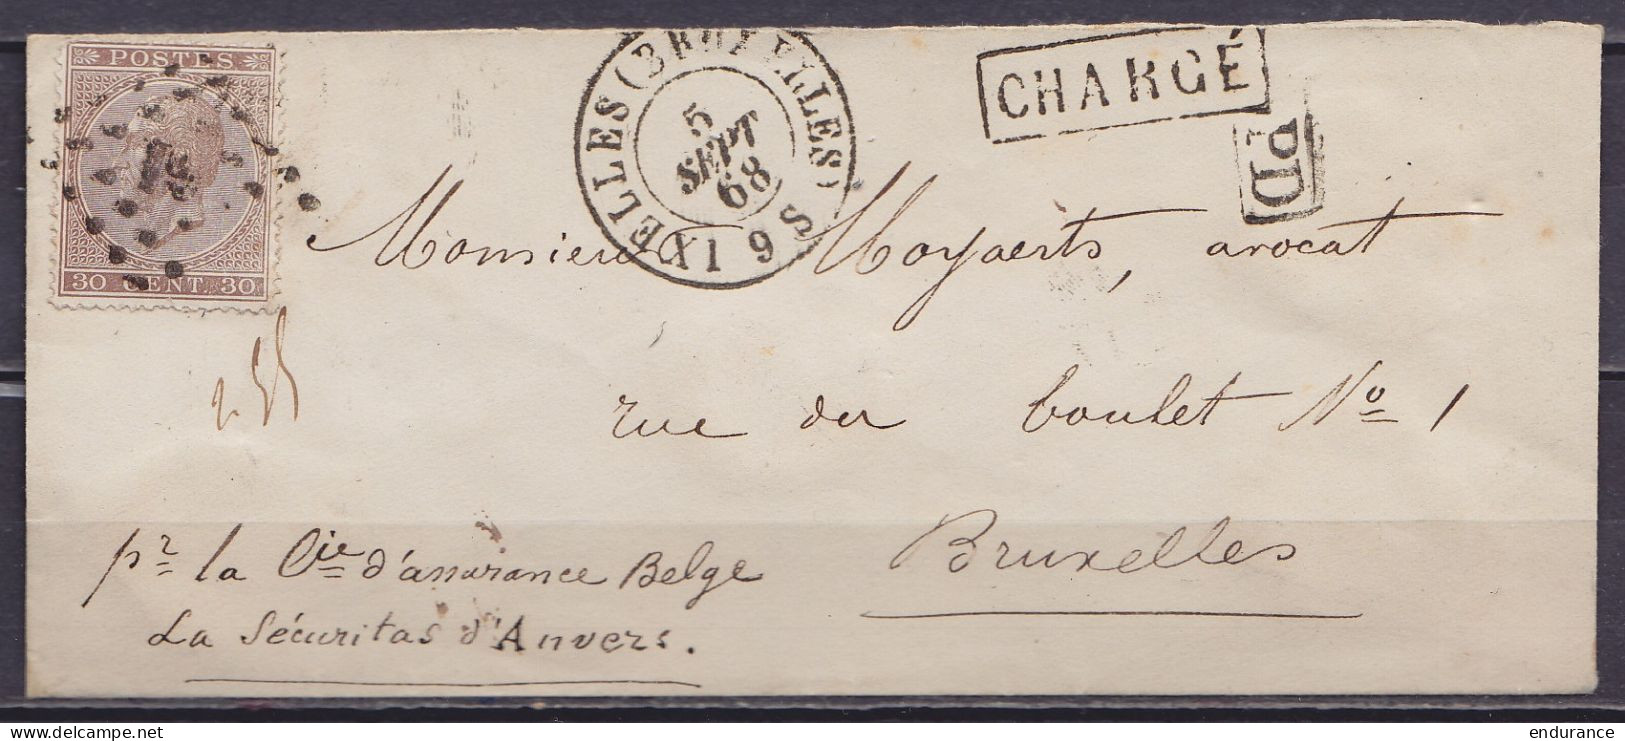 POSTES
30 CENT. 30
IXELLES (BRUXELLES)
5
SEPT
68
9 S
CHARGÉ
PD
Monsieur Moyaerts, avocat
rue du boulet Nº 1
Bruxelles
pr la Cie d'assurance Belge
La Sécuritas d'Anvers.
delcampe.net
endurance